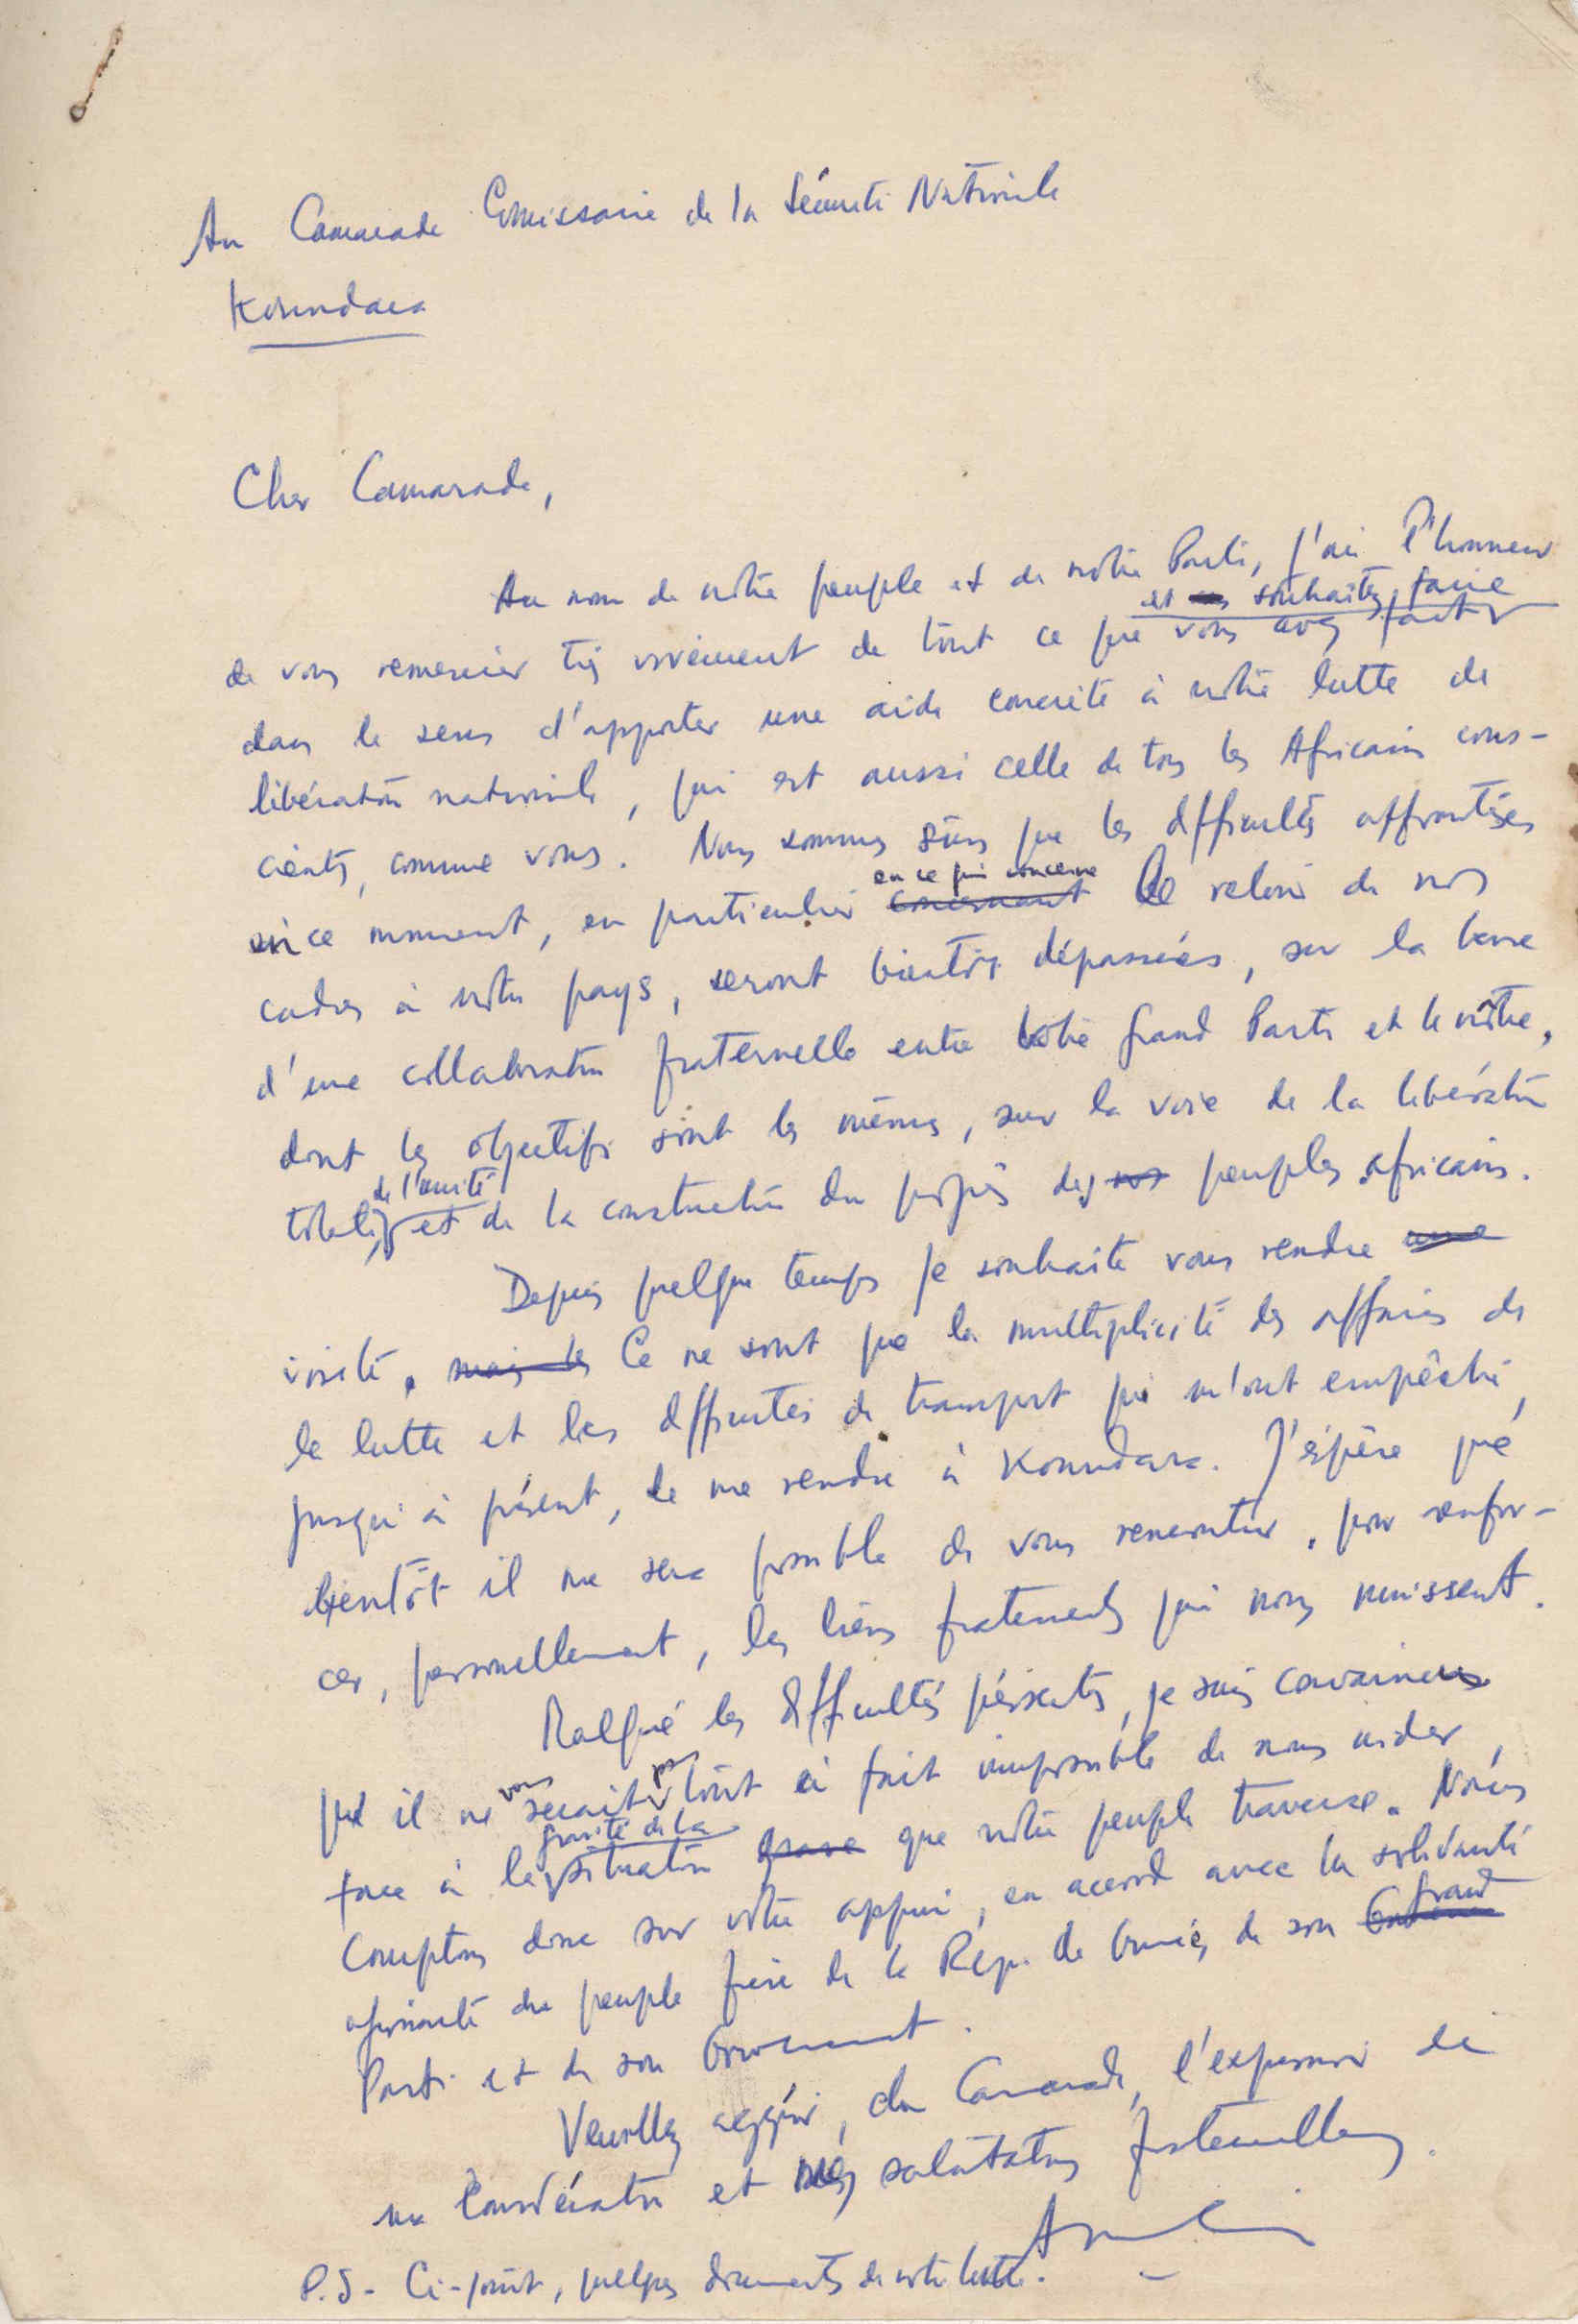 Au Camarade Comissaire de la Sécurité Nationale
Koundara
Cher Camarade,
Au nom de notre peuple et de notre Parti, j'ai l'honneur
et souhaitez faire
de vous remercier très vivement de tout ce que vous avez fait
dans le sens d'apporter une aide concrète à notre lutte de
libération nationale, qui est aussi celle de tous les Africains cons-
cients, comme vous. Nous sommes sûrs que les difficultés affrontées
en ce qui concerne
en ce moment, en particulier concernant le retour de nos
cadres à notre pays, seront bientôt dépassées, sur la base
d'une collaboration fraternelle entre votre grand Parti et le nôtre,
dont les objectifs sont les mêmes, sur la voie de la libération
de l'unité
totale, et de la construction du progrès des nos peuples africains.
Depuis quelque temps je souhaite vous rendre une
visite. mais les Ce ne sont que la multiplicité des affaires de
la lutte et les difficultés de transport qui m'ont empêché,
jusqu'à présent, de me rendre à Koundara. J'espère que
bientôt il me sera possible de vous rencontrer, pour renfor-
cer, personnellement, les liens fraternels qui nous unissent.
Malgré les difficultés présentes, je suis convaincu
vous pas
que il ne serait tout à fait impossible de nous aider,
gravité de la
face à la situation grave que notre peuple traverse. Nous
comptons donc sur votre appui, en accord avec la solidarité
grand
agissante du peuple frère de la Rep. de Guinée, de son
Parti et de son Gouvernement.
Veuillez agréer, cher Camarade, l'expression de
ma considération et mes salutations fraternelles.
P.S - Ci-joint, quelques documents de notre lutte.